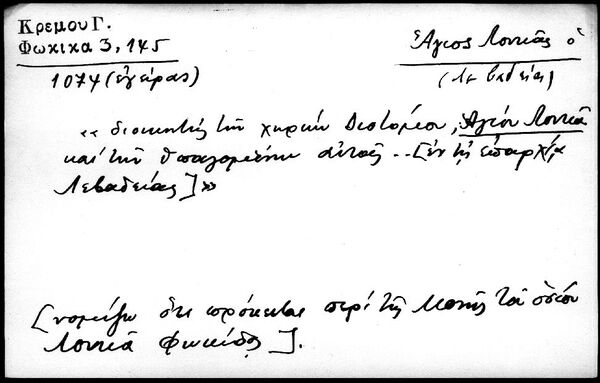 Κρεμου Γ.
Φωκικα 3, 145
1074 (έγειρας)
Ἅγιος Λουκᾶς ὁ
(Λεβαδείας)
«διοικητής τῶν χωριῶν Διστόμου, Ἁγίου Λουκᾶ
καί τῶν ὑπαγομένων αὐταῖς .. [ἐν τῇ ἐπαρχίᾳ
Λεβαδείας]»
[νομίζω ὅτι πρόκειται περί τῆς Μονῆς τοῦ ὁσίου
Λουκᾶ Φωκίδος].